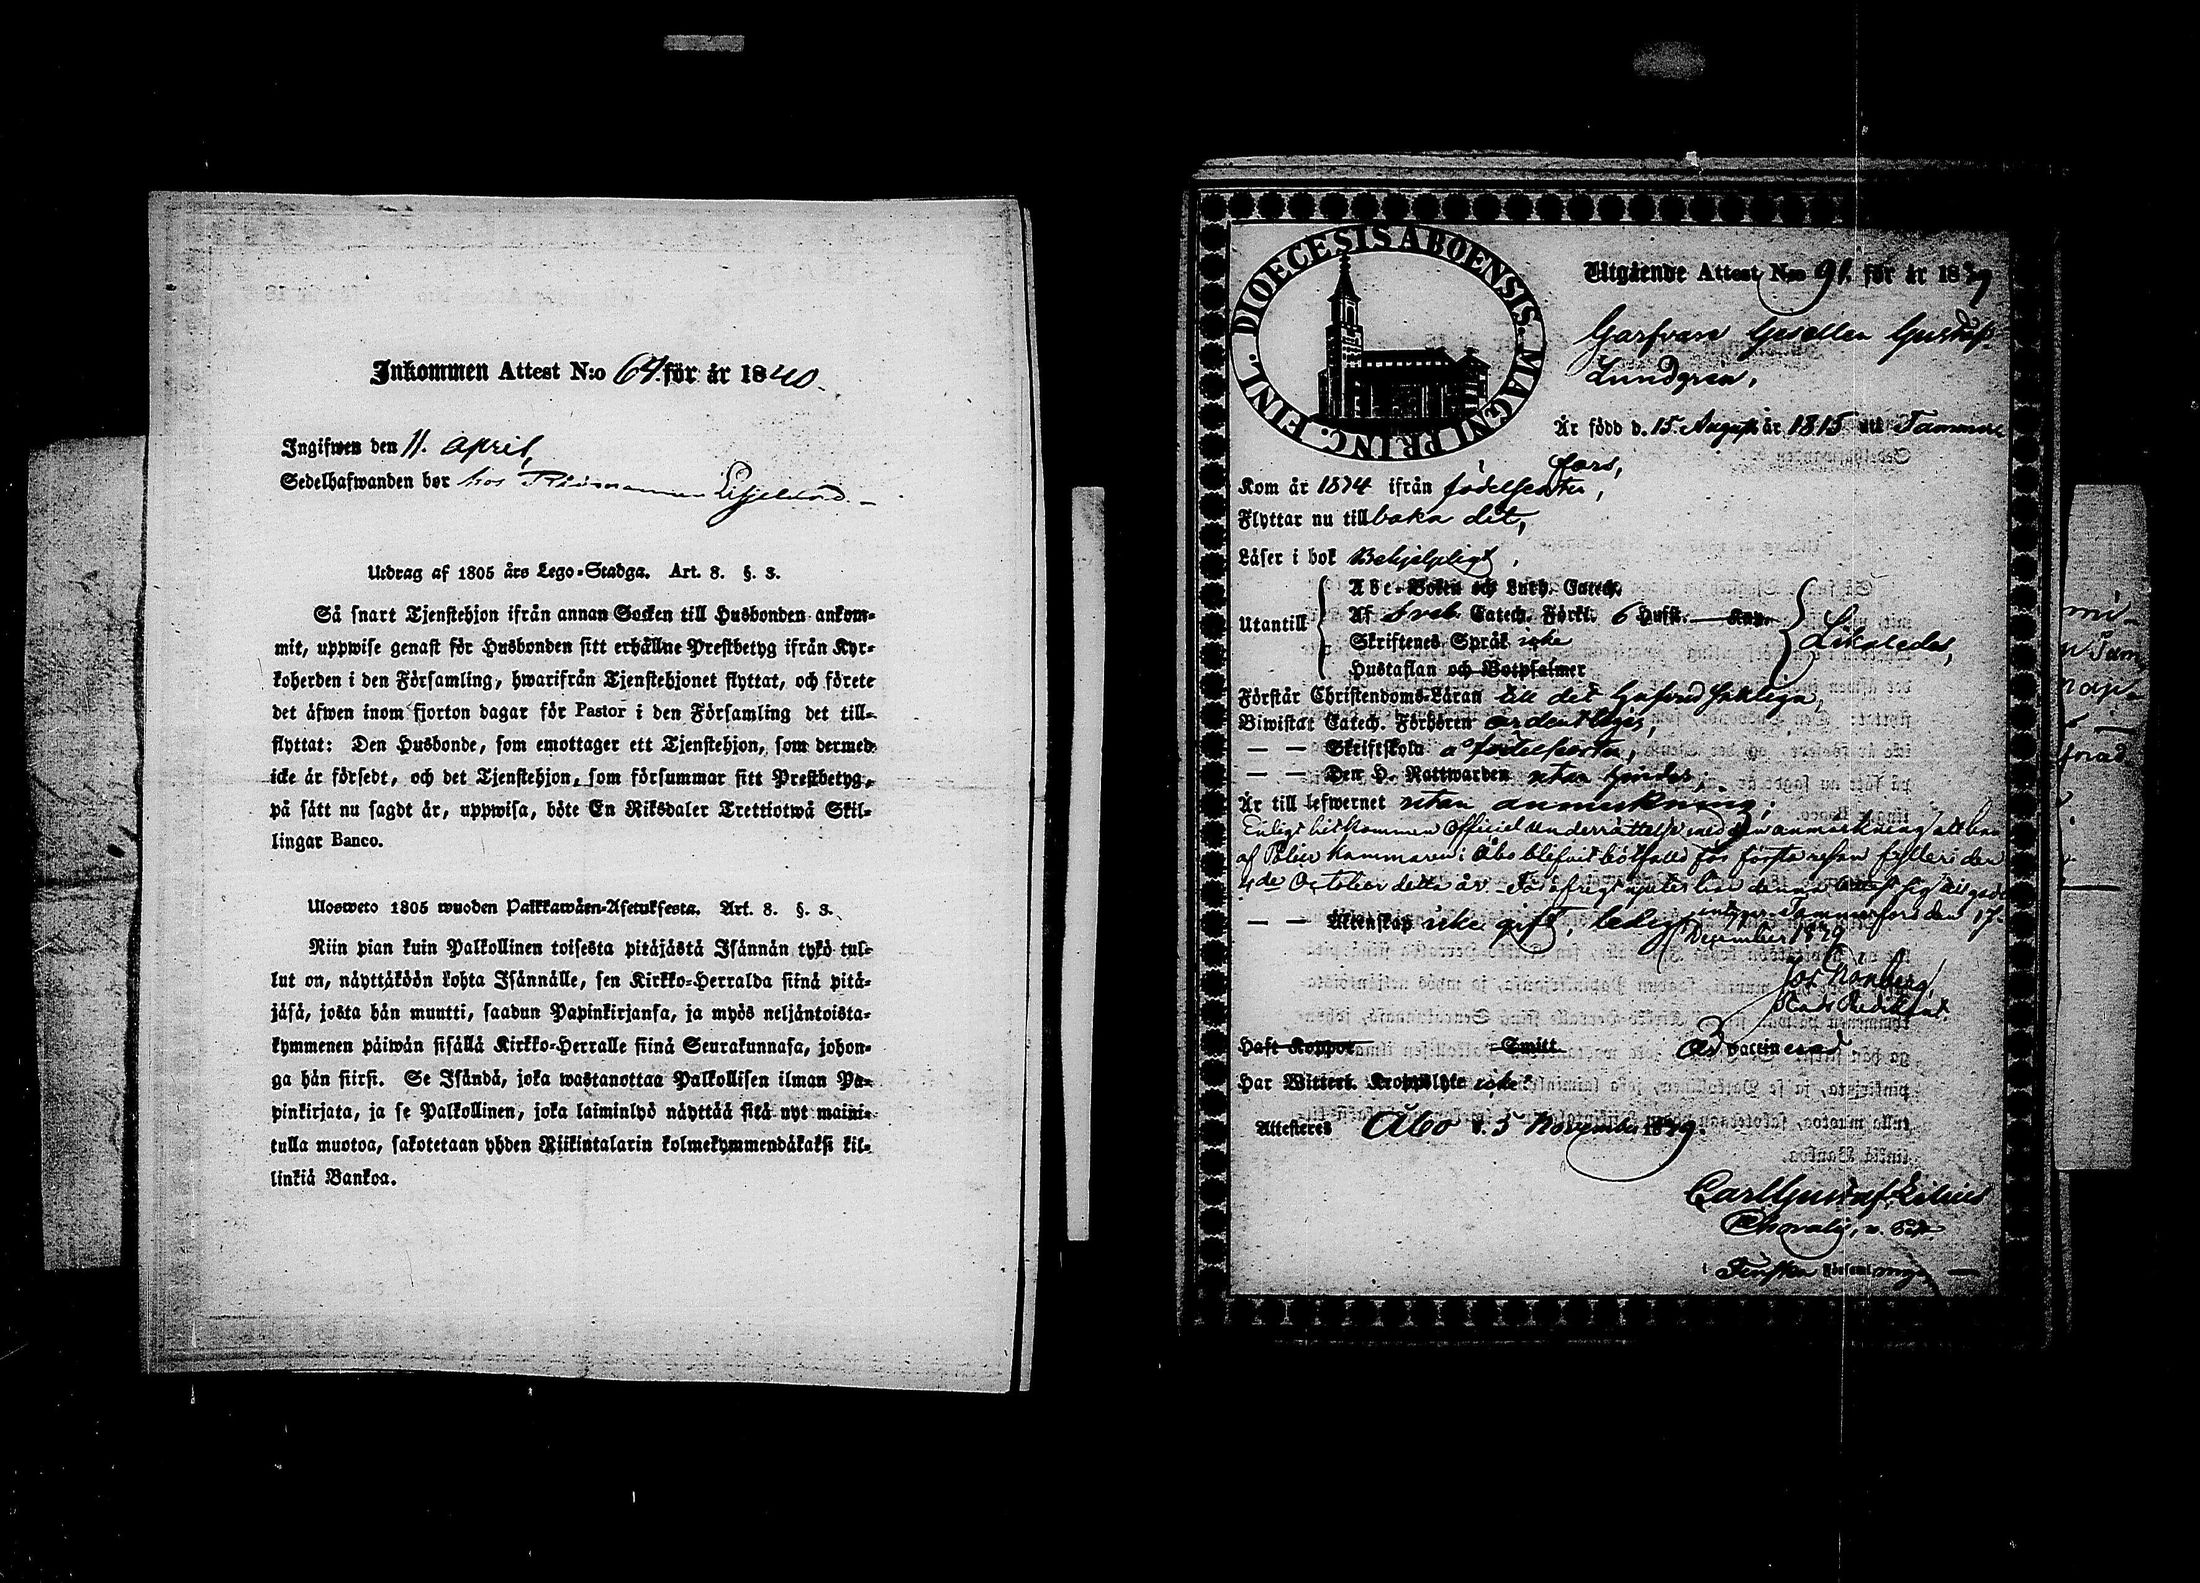 Inkommen Attest N:o 64. för år 1840.
Ingifwen den 11. April,
Sedelhafwanden bor hos Rådmannen
Utdrag af 1805 års Lego-Stadga. Art. 8. §. 3.
Så snart Tjenstehjon ifrån annan Socken till Husbonden ankom-
mit, uppwise genast för Husbonden sitt erhållne Prestbetyg ifrån Kyr-
koherden i den Församling, hwarifrån Tjenstehjonet flyttat, och förete
det äfwen inom fjorton dagar för Pastor i den Församling det till-
flyttat: Den Husbonde, som emottager ett Tjenstehjon, som dermed
icke är försedt, och det Tjenstehjon, som försummar sitt Prestbetyg,
på sätt nu sagdt är, uppwisa, böte En Riksdaler Trettiotwå Skil-
lingar Banco.
Ulosweto 1805 wuoden Palkkawäen-Asetuksesta. Art. 8. §. 3.
Niin pian kuin Palkollinen toisesta pitäjästä Isännän tykö tul-
lut on, näyttäköön kohta Isännälle, sen Kirkko-Herralda siinä pitä-
jäsä, josta hän muutti, saadun Papinkirjansa, ja myös neljäntoista-
kymmenen päiwän sisällä Kirkko-Herralle siinä Seurakunnasa, johon-
ga hän siirsi. Se Isändä, joka wastanottaa Palkollisen ilman Pa-
pinkirjata, ja se Palkollinen, joka laiminlyö näyttää sitä nyt maini-
tulla muotoa, sakotetaan yhden Riikintalarin kolmekymmendäkaksi kil-
linkiä Bankoa.
DIOECESIS ABOENSIS. MAGNI PRINC. FINL.
Utgående Attest N:o 91. för år 1839
Garfvare Gesellen Gustaf
Lundgren,
Är född d. 15. August år 1815 uti Tammer
fors,
Kom år 1834 ifrån födelseorten,
Flyttar nu tillbaka dit,
Läser i bok Behjelpligt,
Utantill
Abc-Boken och Luth. Catech.
Af Sveb. Catech. Förkl. 6 Hufst. Kap.
Skriftenes Språk icke
Hustaflan och Botpsalmer
Likaledes,
Förstår Christendoms-Läran till det
Biwistat Catech. Förhören ordentligen,
— — Skriftskola å födelseorten,
— — Den H. Nattwarden utan hinder,
Är till lefwernet utan anmärkning;
Enligt hitkommen Officiel underrättelse med anmärkning att han
af Police Kammaren i Åbo blifvit bötfälld för första resan fylleri den
4de October detta år.
Tammerfors den 17.
December 1839
— — Äktenskap icke gift, ledig
Haft Koppor Smitt Är vaccinerad
Har Witterl. Kroppslyte icke
Attesteres Åbo d. 5 November 1839.
Carl Gustaf
i Finska Församlingen —